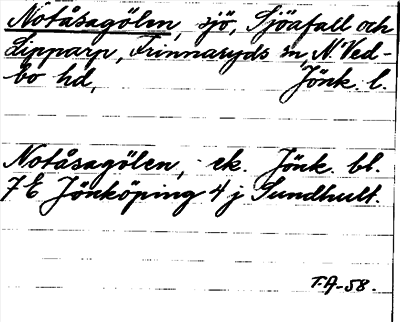 Notåsagölen, sjö, Sjöafall och
Lipparp, Frinnaryds sn, N. Ved-
bo hd, Jönk. l.
Notåsagölen, ek. Jönk. bl.
7 E Jönköping 4 j Sundhult.
T.A-58.